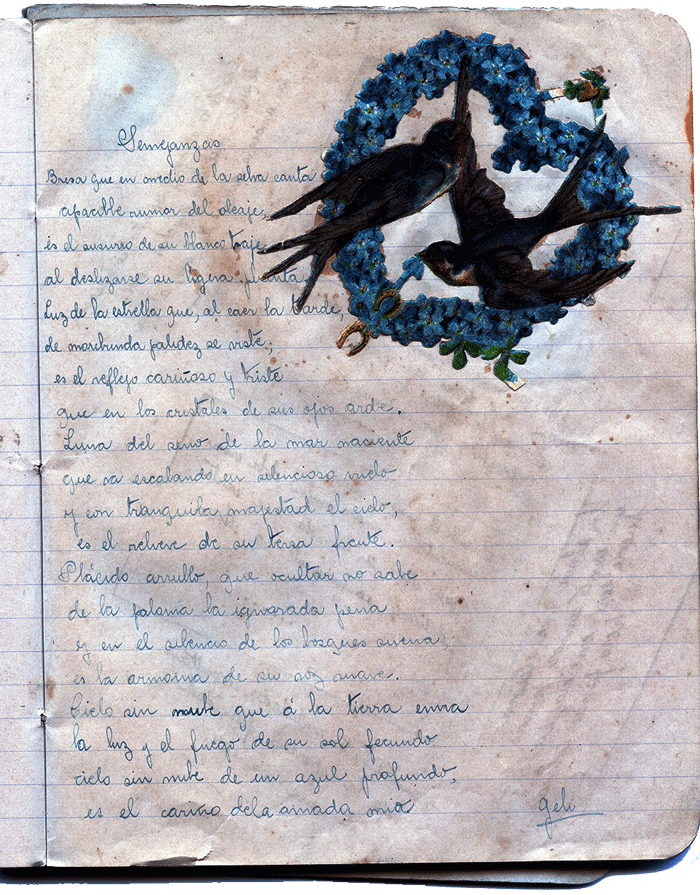 Semejanzas
Brisa que en medio de la selva canta
apacible rumor del oleaje,
es el susurro de su blanco traje
al deslizarse su ligera planta.
Luz de la estrella que, al caer la tarde,
de moribunda palidez se viste;
es el reflejo cariñoso y triste
que en los cristales de sus ojos arde.
Luna del seno de la mar naciente
que va escalando en silencioso vuelo
y con tranquila majestad el cielo,
es el relieve de su tersa frente.
Plácido arrullo, que ocultar no sabe
de la paloma la ignorada pena
y en el silencio de los bosques suena
es la armonia de su voz suave.
Cielo sin nube que á la tierra envia
la luz y el fuego de su sol fecundo
cielo sin nube de un azul profundo,
es el cariño dela amada mia